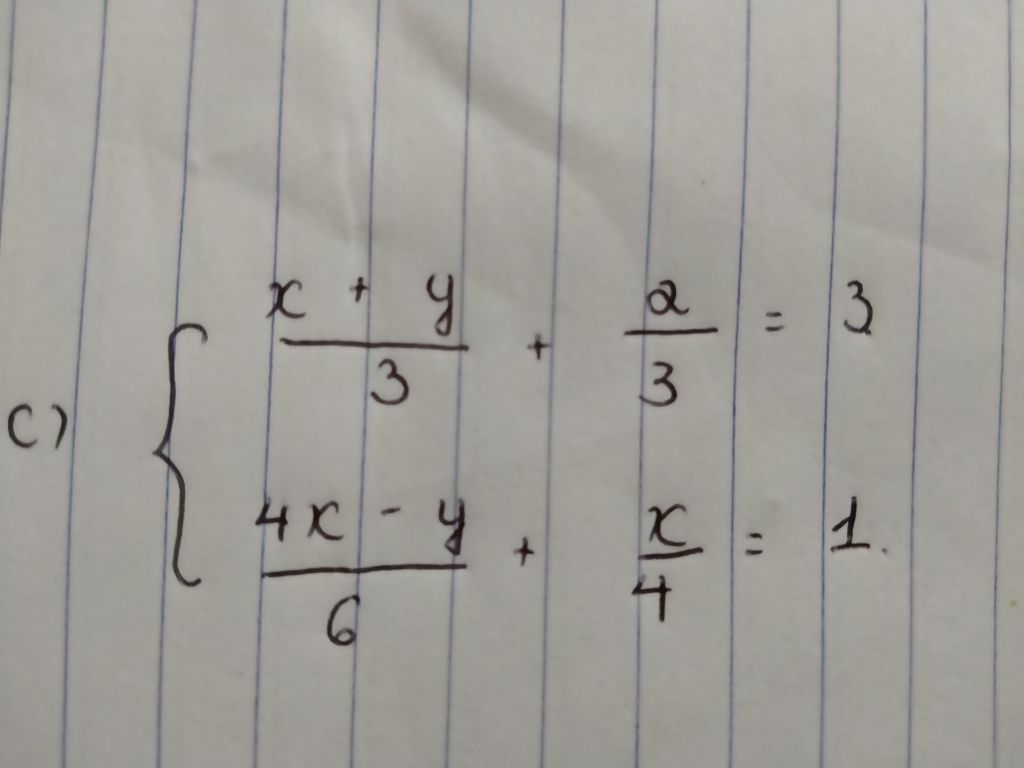 x + y / 3 + 2 / 3 = 3
c) {
4x - y / 6 + x / 4 = 1.